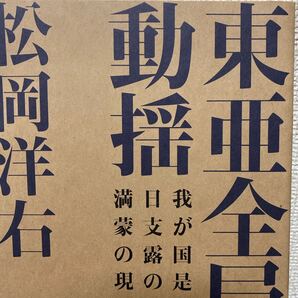 東亜全局
動揺
我が国是
日支露の
満蒙の現
松岡洋右